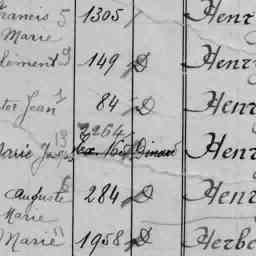 Francis 5 1305 Henr
Marie
lément 9 149 D Henry
Jean 1 84 D Henr
13 2264
Marie Dinard Henr
Auguste 6 284 D Henr
Marie
Marie 11 1958 D Herbe